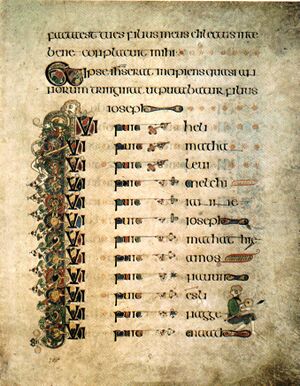 factaest tues filius meus dilectus inte
bene conplacuit mihi
Et ipse ihs erat incipiens quasi an
norum triginta ut putabatur filius
ioseph
QUI fuit heli
QUI fuit mathat
QUI fuit leui
QUI fuit melchi
QUI fuit
QUI fuit ioseph
QUI fuit mathathie
QUI fuit amos
QUI fuit nauum
QUI fuit esli
QUI fuit nagge
QUI fuit maath